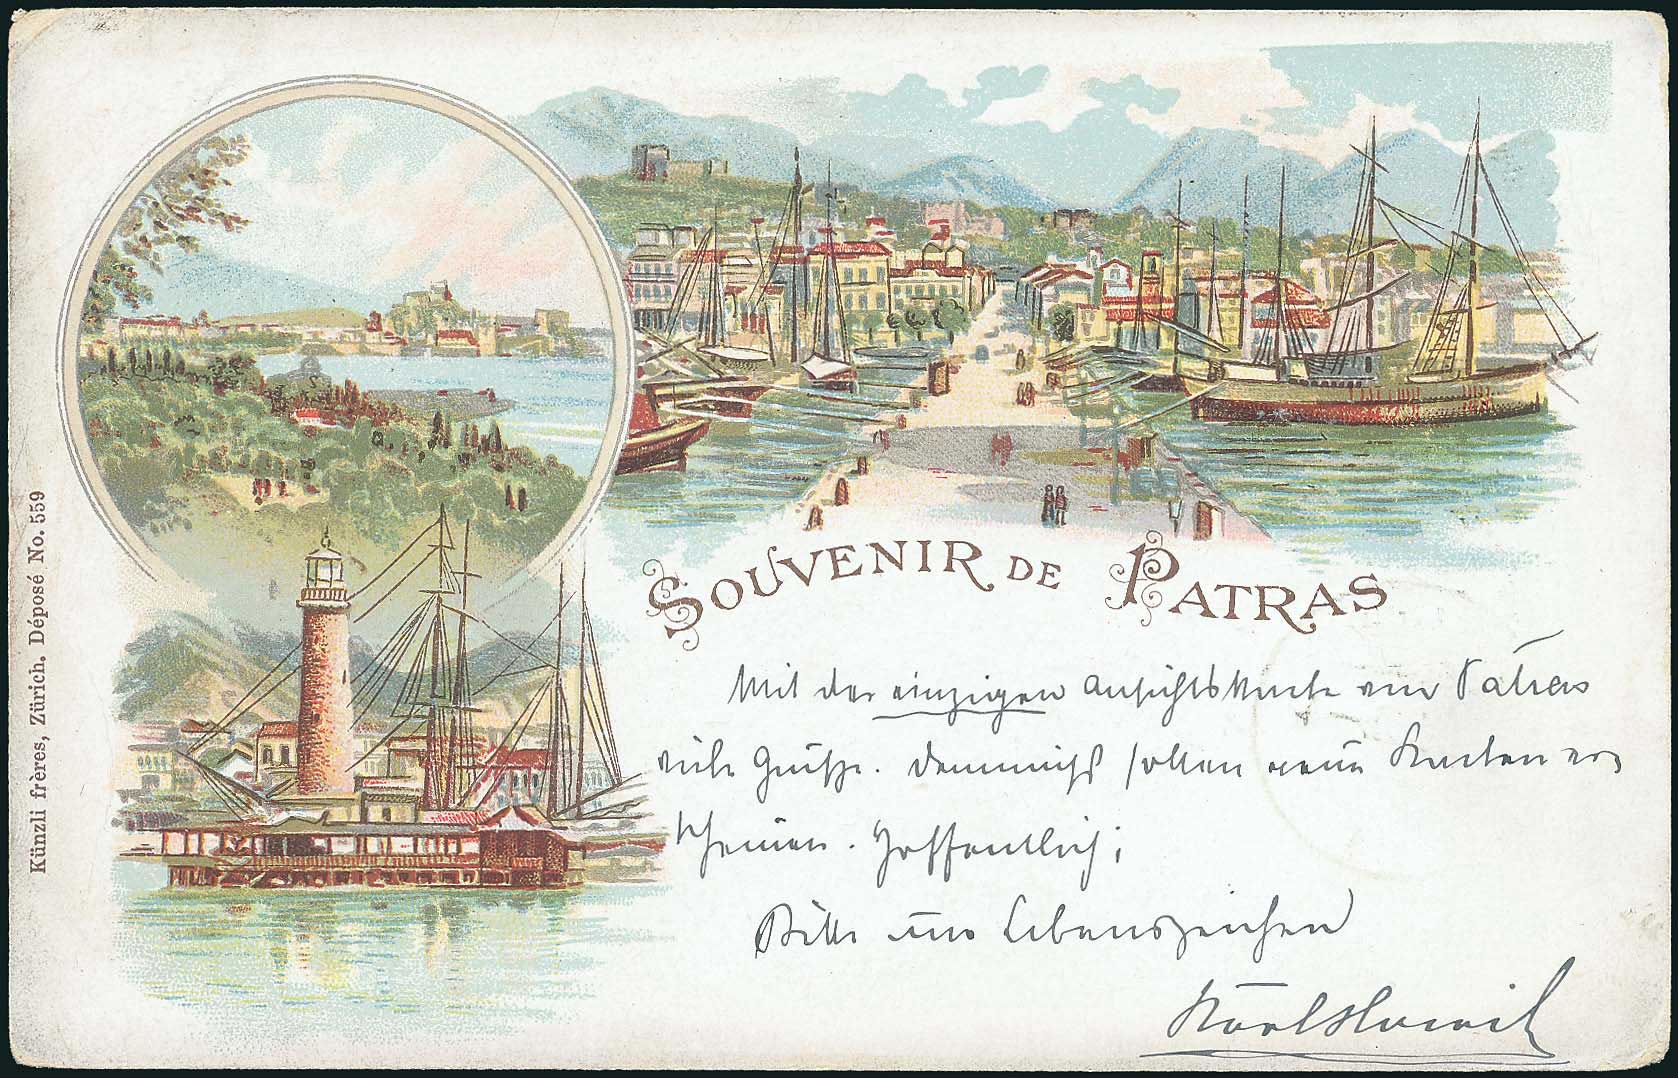 Künzli frères, Zürich. Déposé No. 559
SOUVENIR DE PATRAS
Mit der einzigen Ansichtskarte von Patras
viele Grüße. Demnächst sollen neue Karten er-
scheinen. Hoffentlich!
Bitte um Lebenszeichen
Karl